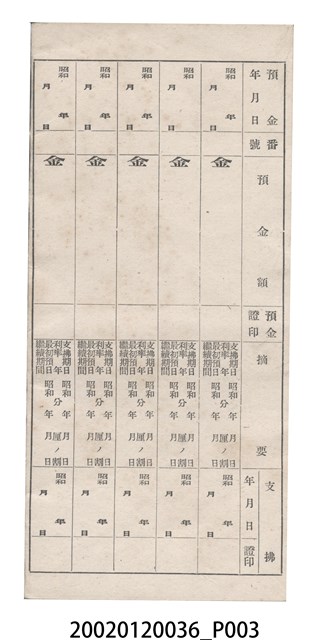 預金番號
年月日
預金額
預金證印
摘要
支拂
年月日
證印
昭和 年 月 日
金
支拂期日 年 月 日
利率 年 分 厘ノ割
最初預日 昭和 年 月 日
繼續期間
昭和 年 月 日
昭和 年 月 日
金
支拂期日 年 月 日
利率 年 分 厘ノ割
最初預日 昭和 年 月 日
繼續期間
昭和 年 月 日
昭和 年 月 日
金
支拂期日 年 月 日
利率 年 分 厘ノ割
最初預日 昭和 年 月 日
繼續期間
昭和 年 月 日
昭和 年 月 日
金
支拂期日 年 月 日
利率 年 分 厘ノ割
最初預日 昭和 年 月 日
繼續期間
昭和 年 月 日
昭和 年 月 日
金
支拂期日 年 月 日
利率 年 分 厘ノ割
最初預日 昭和 年 月 日
繼續期間
昭和 年 月 日
20020120036_P003